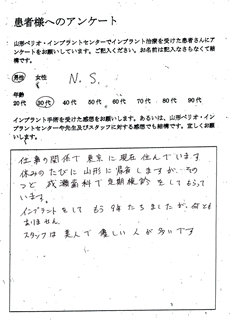 患者様へのアンケート
山形ペリオ・インプラントセンターでインプラント治療を受けた患者さんに
アンケートをお願いしています。ご記入ください。お名前は記入なさらなくて結
構です。
男性 女性 N. S.
年齢
20代 30代 40代 50代 60代 70代 80代 90代
インプラント手術を受けた感想をお願いします。あるいは、山形ペリオ・イン
プラントセンターや先生及びスタッフに対する感想でも結構です。宜しくお願
いします。
仕事の関係で東京に現在住んでいます
休みのたびに山形に帰省しますが、その
つど 成瀬歯科で定期検診をしてもらって
います。
インプラントをして もう9年たちましたが、何とも
ありません。
スタッフは美人で優しい人が多いです